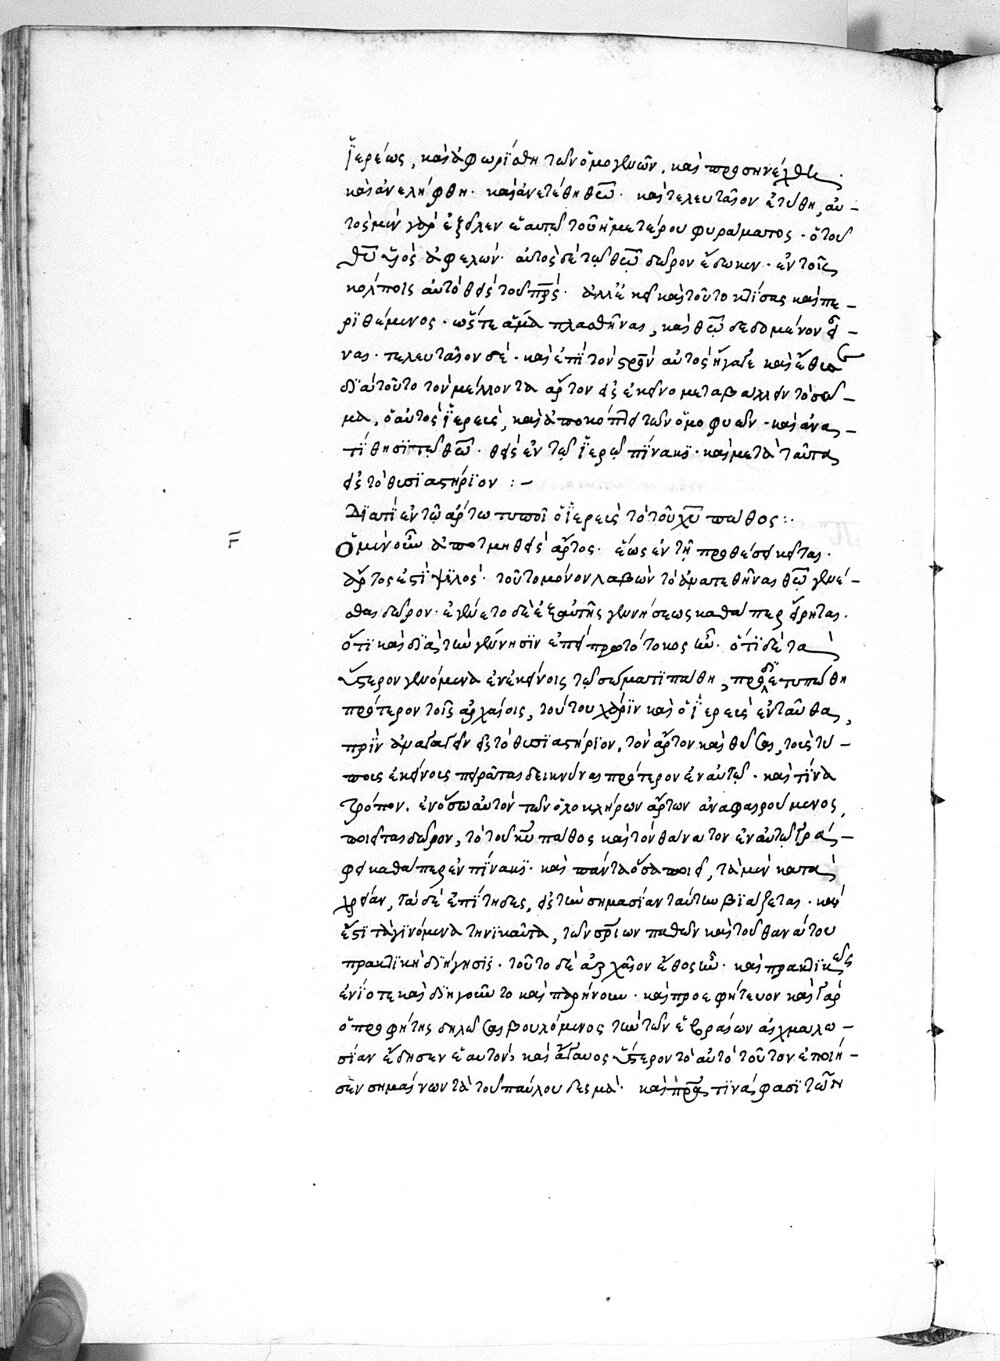 ἱερέως, καὶ ἀφωρίσθη τῶν ὁμογενῶν, καὶ προσηνέχθη
καὶ ἀνελήφθη· καὶ ἀνετέθη θεῶ· καὶ τελευταῖον ἐτύθη, αὐ-
τὸς μὲν γὰρ ἐξεῖλεν ἑαυτῷ τοῦ ἡμετέρου φυράματος· ὁ τοῦ
θυ υἱὸς ἀφελών· αὐτὸς δὲ τῷ θεῷ δῶρον ἔδωκεν· ἐν τοῖς
κόλποις αὐτὸ θεὶς τοῦ πρς· ἀλλ' ἐκεῖ καὶ τοῦτο κτίσας καὶ πε-
ριθέμενος· ὥστε ἅμα πλασθῆναι, καὶ θεῶ δεδομένον εἶ-
ναι· τελευταῖον δὲ· καὶ ἐπὶ τὸν σρὸν αὐτὸς ἤγαγε καὶ ἔθυσε
διὰ τοῦτο τὸν μέλλοντα ἄρτον εἰς ἐκεῖνο μεταβάλλειν τὸ σῶ-
μα, ὁ αὐτὸς ἱερεὺς, καὶ ἀποκόπτει τῶν ὁμοφυῶν· καὶ ἀνα-
τίθησι τῷ θεῶ· θεὶς ἐν τῷ ἱερῷ πίνακι· καὶ μετὰ ταῦτα
εἰς τὸ θυσιαστήριον :-
Διατί ἐν τῷ ἄρτω τυποῖ ὁ ἱερεὺς τὸ τοῦ χυ πάθος :·
Ὁ μὲν οὖν ἀποτμηθεὶς ἄρτος· ἕως ἐν τῇ προθέσει κεῖται·
ἄρτος ἐστὶ ψιλός· τοῦτο μόνον λαβὼν τὸ ἀνατεθῆναι θεῶ γενέ-
σθαι δῶρον· ἐγένετο δὲ ἐξ αὐτῆς γεννήσεως καθάπερ εἴρηται·
ὅτι καὶ διὰ τὴν γέννησιν ἐπεὶ πρωτότοκος ἦν· ὅτι δὲ τὰ
ὕστερον γενόμενα ἐν ἐκείνοις τῷ σώματι πάθη, προδιετυπώθη
πρότερον τοῖς ἀρχαίοις, τούτου χάριν καὶ ὁ ἱερεὺς ἐνταῦθα,
πρὶν ἀναγαγεῖν εἰς τὸ θυσιαστήριον, τὸν ἄρτον καὶ θῦσαι, τοὺς τύ-
πους ἐκείνοις πειρᾶται δεικνύναι πρότερον ἐν αὐτῷ· καὶ τίνα
τρόπον. ἐν ὅσω αὐτὸν τῶν ὁλοκλήρων ἄρτων ἀναφαιρούμενος,
ποιεῖται δῶρον, τὸ τοῦ κυ πάθος καὶ τὸν θάνατον ἐν αὐτῷ γρά-
φει καθάπερ ἐν πίνακι· καὶ πάντα ὅσα ποιεῖ, τὰ μὲν κατὰ
χρείαν, τὰ δὲ ἐπίτηδες, εἰς τὴν σημασίαν ταύτην βιάζεται· καὶ
ἔστι τὰ γινόμενα τηνικαῦτα, τῶν σρίων παθῶν καὶ τοῦ θανάτου
πρακτικὴ διήγησις· τοῦτο δὲ ἀρχαῖον ἔθος ἦν· καὶ πρακτικῶς
ἐνίοτε καὶ διηγοῦντο καὶ παρήνουν· καὶ προεφήτευον καὶ γὰρ
ὁ προφήτης δηλῶσαι βουλόμενος τὴν τῶν ἑβραίων αἰχμαλω-
σίαν ἔδησεν ἑαυτόν· καὶ ἄγαβος ὕστερον τὸ αὐτὸ τοῦτον ἐποίη-
σεν σημαίνων τὰ τοῦ παύλου δεσμά· καὶ πρα τινά φασι τῶν